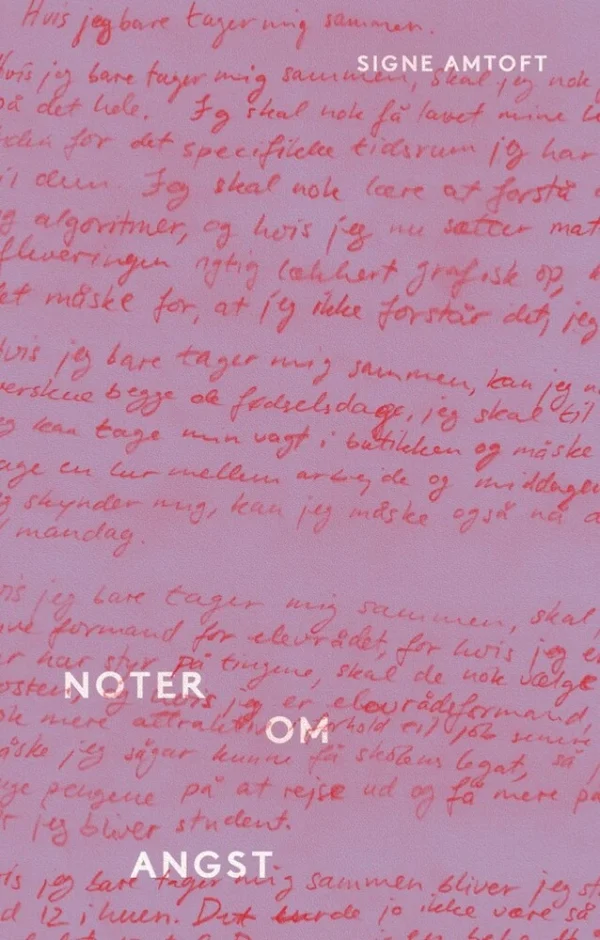 Hvis jeg bare tager mig sammen.
SIGNE AMTOFT
Hvis jeg bare tager mig sammen, skal jeg nok
på det hele. Jeg skal nok få lavet mine
inden for det specifikke tidsrum jeg har
til dem. Jeg skal nok lære at forstå
og algoritmer, og hvis jeg nu sætter mat
fleveringen rigtig lækkert grafisk op,
det måske for, at jeg ikke forstår det, jeg
Hvis jeg bare tager mig sammen, kan jeg
verskue begge fødselsdage, jeg skal til
eg kan tage min vagt i butikken og måske
age en lur mellem arbejde og middagen
g skynder mig, kan jeg måske også nå
mandag.
vis jeg bare tager mig sammen, skal
ive formand for elevrådet, for hvis jeg
er har styr på tingene, skal de nok vælge
NOTER
posten, og hvis jeg er elevrådsformand,
OM
ok mere attraktiv i forhold til job senere
åske jeg sågar kunne få skolens legat, så
ge pengene på at rejse ud og få mere
r jeg bliver student.
ANGST
vis jeg bare tager mig sammen bliver jeg
d 12 i huen. Det burde jo ikke være så